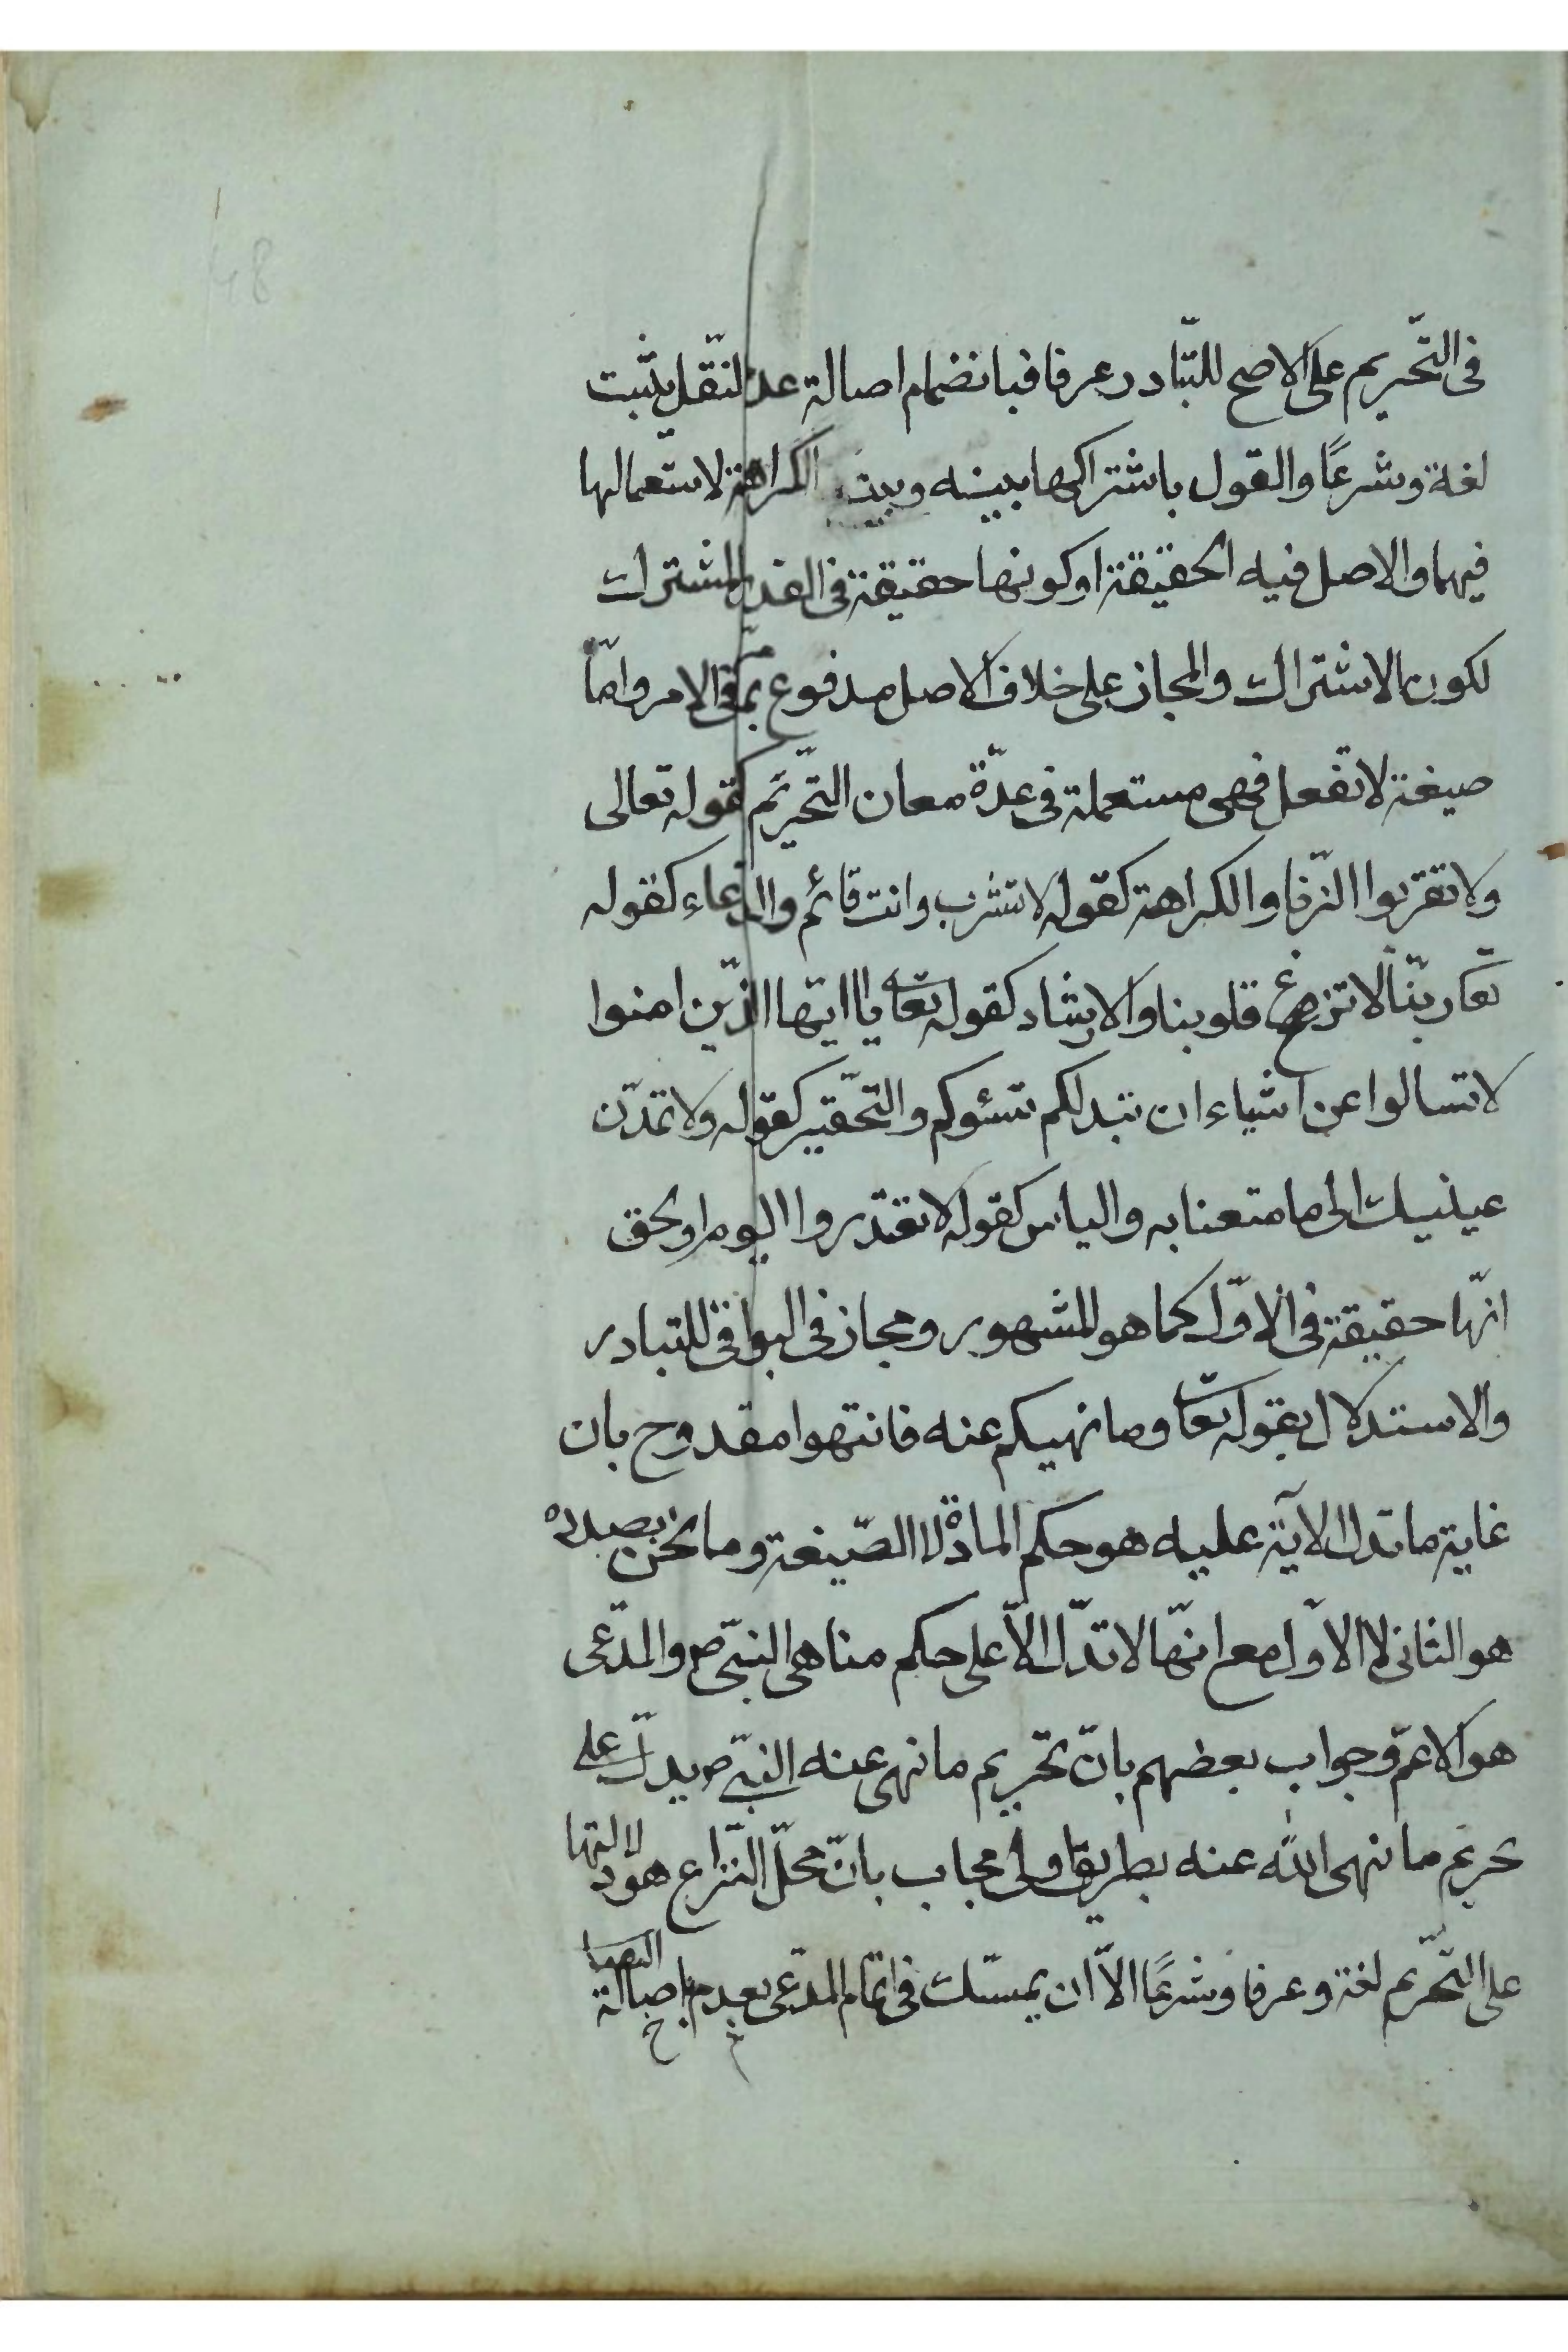 48
فى التّحريم على الاصح للتّبادر عرفا فبانضمام اصالة عدم النّقل يثبت
لغة وشرعًا والقول باشتراكها بينه وبين الكراهة لاستعمالها
فيهما والاصل فيه الحقيقة او كونها حقيقة فى القدر المشترك
لكون الاشتراك والمجاز على خلاف الاصل مدفوع بما مرّ فى الامر وامّا
صيغة لا تفعل فهى مستعملة فى عدّة معان التّحريم كقوله تعالى
ولا تقربوا الزّنا والكراهة كقوله لا تشرب وانت قائم والدعاء كقوله
تعا ربّنا لا تزغ قلوبنا والارشاد كقوله تعا يا ايّها الّذين امنوا
لا تسالوا عن اشياء ان تبدلكم تسئوكم والتّحقير كقوله ولا تمدّن
عينيك الى ما متعنا به والياس كقوله لا تعتذروا اليوم والحق
انّها حقيقة فى الاوّل كما هو المشهور ومجاز فى البواقى للتبادر
والاستدلال بقوله تعا وما نهيكم عنه فانتهوا مقدوح بان
غاية ما تدل الاية عليه هو حكم المادة لا الصّيغة وما نحن بصدده
هو الثانى لا الاوّل مع انّها لا تدّل الاّ على حكم مناهى النبىّ ص والمدّعى
هو الاعمّ وجواب بعضهم بانّ تحريم ما نهى عنه النبىّ ص يدلّ على
تحريم ما نهى الله عنه بطريق اولى مجاب بانّ محلّ النّزاع هو دلالتها
على التّحريم لغة وعرفا وشرعًا الاّ ان يمسّك فى اتمام المدّعى بعدم اصالة